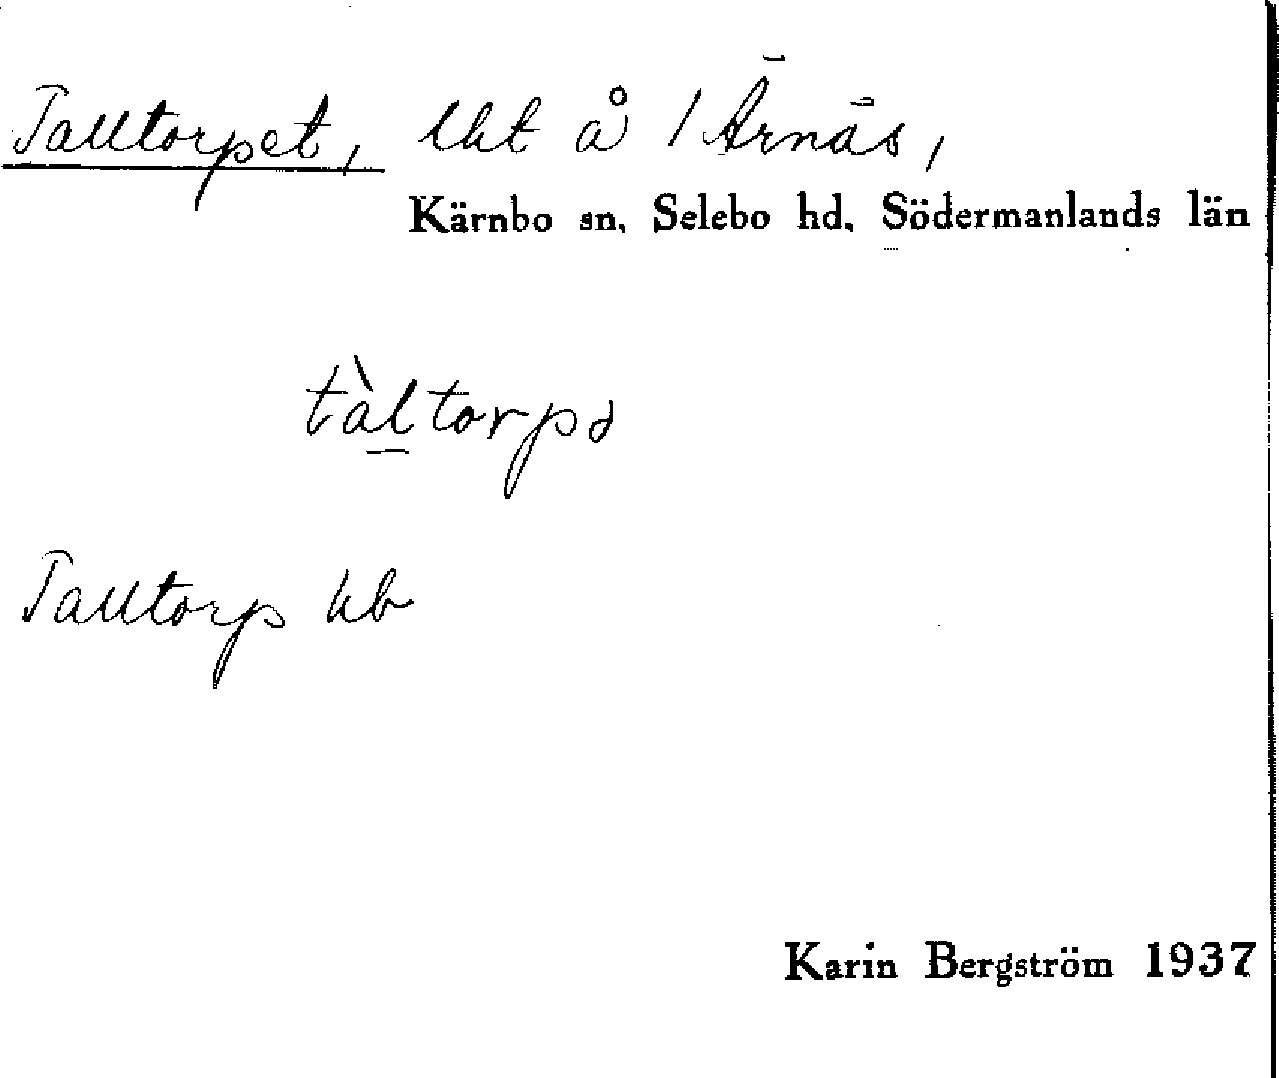 Talltorpet, lht å 1 Ärnäs,
Kärnbo sn. Selebo hd. Södermanlands län
tàltorpə
Talltorp kb
Karin Bergström 1937